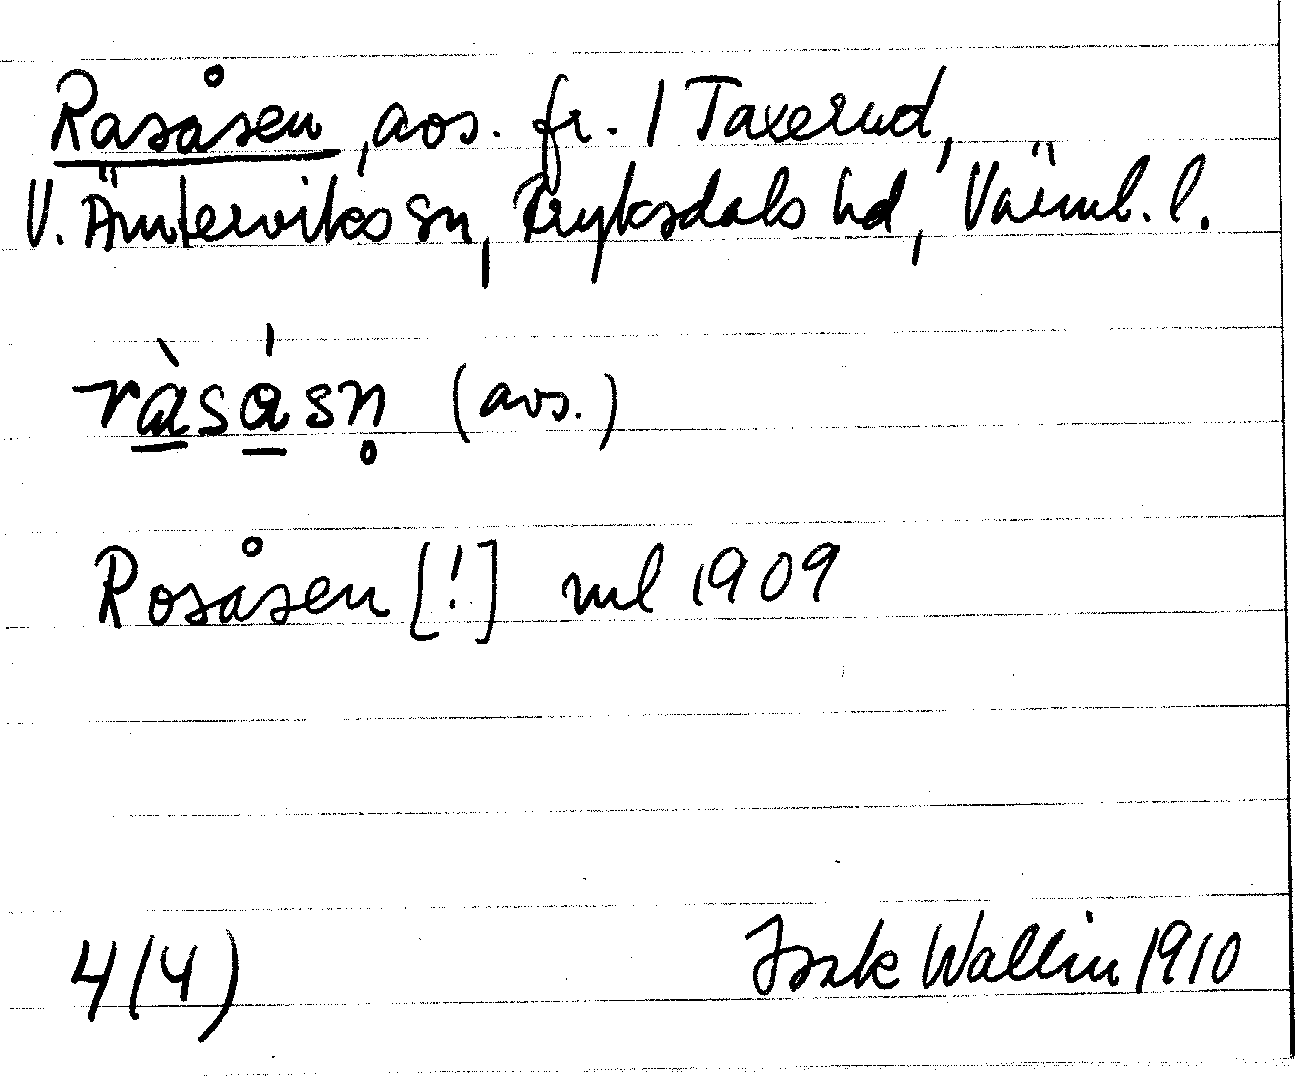 Rasåsen, avs. fr. 1 Taxerud,
V. Ämterviks sn, Fryksdals hd, Värml. l.
ràsásn̥ (avs.)
Rosåsen [!] ml 1909
4(4) Isak Wallin 1910